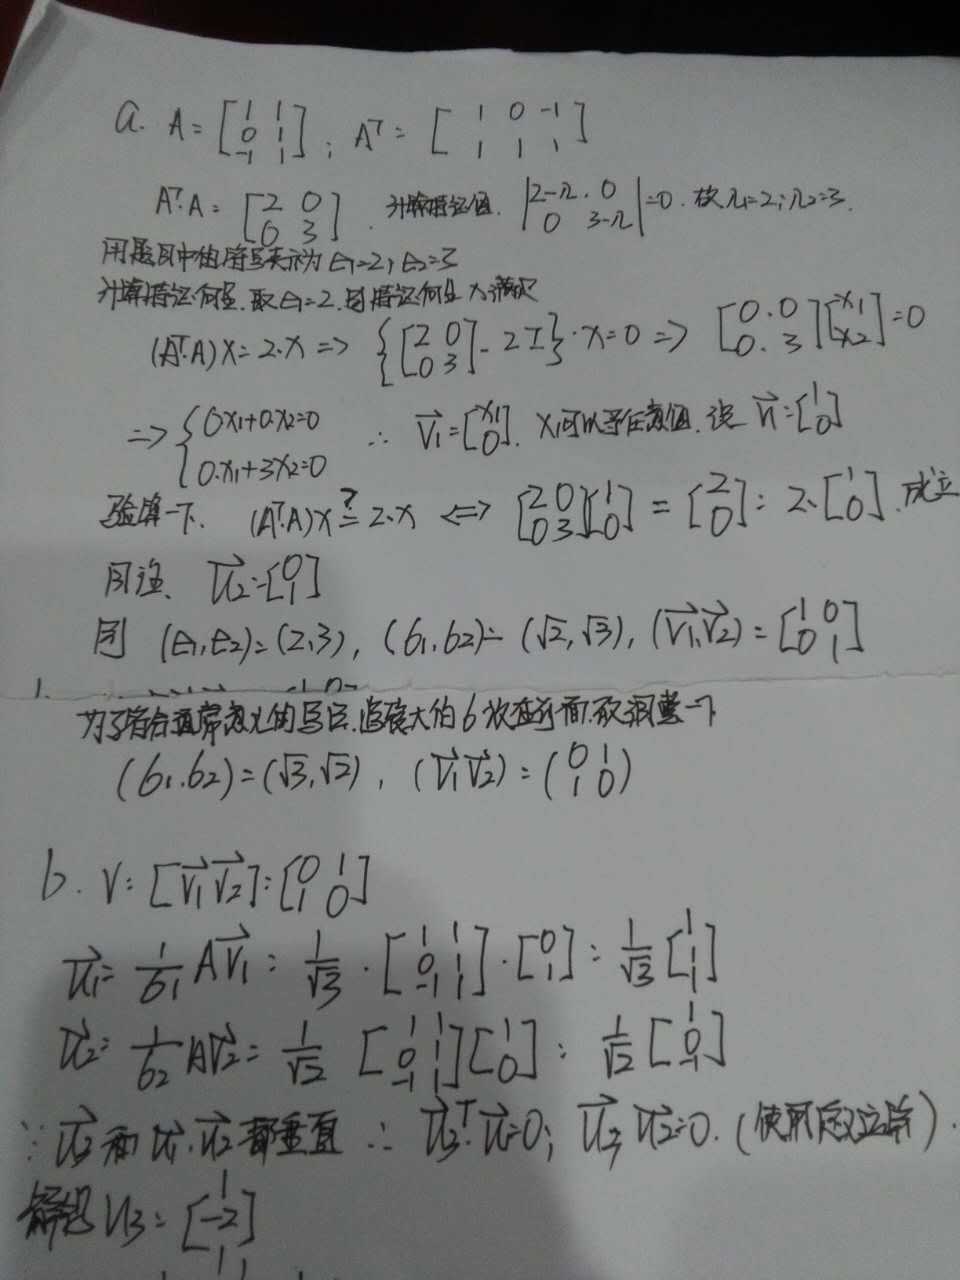 a. A = [1 1; 0 1; -1 1]; Aᵀ = [1 0 -1; 1 1 1]
Aᵀ·A = [2 0; 0 3]. 计算特征值. |2-λ 0; 0 3-λ| = 0. 故 λ1=2; λ2=3.
用题目中的符号表示为 E1=2, E2=3
计算特征向量. 取E1=2. 则特征向量 x 满足
(Aᵀ·A)x = 2·x => {[2 0; 0 3] - 2I}·x = 0 => [0 0; 0 3][x1; x2] = 0
=> {0x1+0x2=0; 0·x1+3x2=0 ∴ v1 = [x1; 0]. x1可以等任意值. 设 v1 = [1; 0]
验算一下. (Aᵀ·A)x ?= 2·x <=> [2 0; 0 3][1; 0] = [2; 0] = 2·[1; 0]. 成立
同理、 v2 = [0; 1]
则 (E1,E2)=(2,3), (σ1,σ2)=(√2,√3), (v1,v2) = [1 0; 0 1]
为了符合通常意义的写法. 将较大的σ放在前面. 故调整一下
(σ1,σ2) = (√3,√2), (v1 v2) = (0 1; 1 0)
b. V = [v1 v2] = [0 1; 1 0]
u1 = 1/σ1 Av1 = 1/√3 · [1 1; 0 1; -1 1]·[0; 1] = 1/√3 [1; 1; 1]
u2 = 1/σ2 Av2 = 1/√2 [1 1; 0 1; -1 1][1; 0] = 1/√2 [1; 0; -1]
∵ u3 和 u1, u2 都垂直 ∴ u3ᵀ·u1=0; u3 u2=0. (使用定义运算).
解得 u3 = [1; -2; 1]